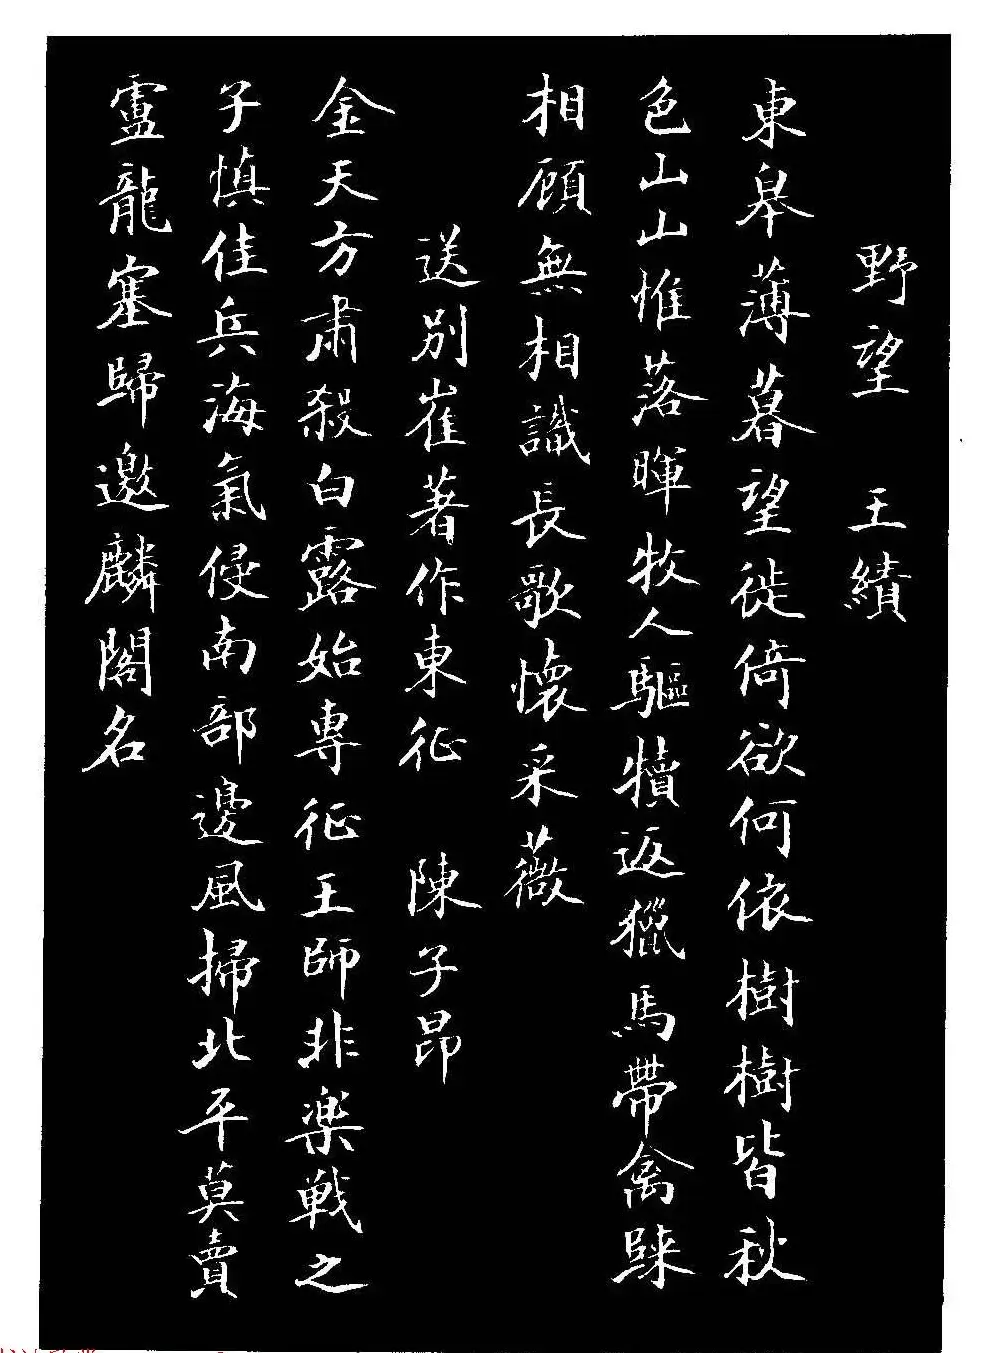 野望 王績
東皋薄暮望徙倚欲何依樹樹皆秋
色山山惟落暉牧人驅犢返獵馬帶禽踈
相顧無相識長歌懷采薇
送別崔著作東征 陳子昂
金天方肅殺白露始專征王師非楽戦之
子慎佳兵海氣侵南部邊風掃北平莫賣
盧龍塞歸邀麟閣名